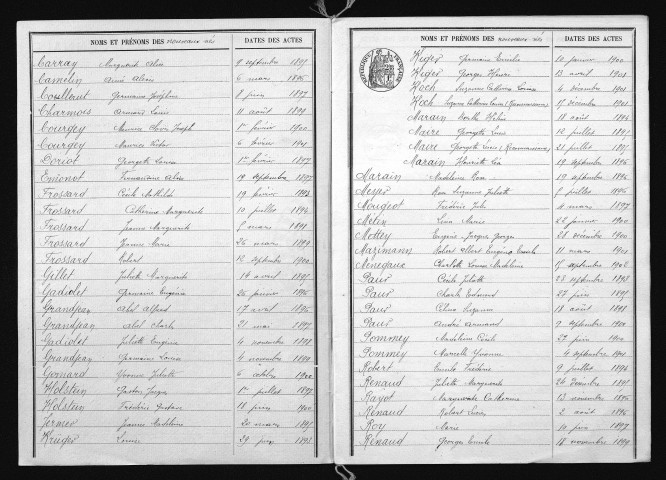 NOMS ET PRÉNOMS DES nouveaux nés DATES DES ACTES
Carray Marguerite Alice 9 septembre 1899
Camélin Aimé Alexis 6 mars 1895
Coulleret Germaine Joséphine 8 juin 1897
Charmois Armand Louis 11 août 1899
Courgey Maurice Joseph 1er février 1900
Courgey Maurice Victor 6 février 1901
Doriot Georgette Louise 1er février 1897
Emonot Alice 19 septembre 1897
Frossard Cécile Mathilde 19 février 1893
Frossard Catherine Marguerite 10 juillet 1894
Frossard Jeanne Marguerite 8 mars 1898
Frossard Jeanne Marie 26 mars 1894
Frossard Robert 12 septembre 1900
Gillet Juliette Marguerite 14 avril 1895
Gadiolet Germaine Eugénie 26 janvier 1896
Grandjean Abel Alfred 17 avril 1896
Grandjean Abel Charles 21 mai 1897
Gadiolet Juliette Eugénie 4 novembre 1898
Grandjean Germaine Louise 4 novembre 1899
Gomard Yvonne Juliette 6 octobre 1900
Holstein Gaston 1er juillet 1897
Holstein Frédéric Gustave 18 juin 1900
Jeanne Madeleine 20 mars 1895
Kruger Louise 29 juin 1893
NOMS ET PRÉNOMS DES nouveaux nés DATES DES ACTES
RÉPUBLIQUE FRANÇAISE
Kiéger Germaine Emilie 10 janvier 1900
Kiéger Georges Henri 13 avril 1901
Koch Suzanne Catherine Louise 4 décembre 1901
Koch Suzanne Catherine Louise (Reconnaissance) 17 décembre 1901
Marain Berthe Hélène 18 août 1894
Maire Georgette 12 juillet 1895
Maire Georgette (Reconnaissance) 21 juillet 1895
Marain Henriette 19 septembre 1896
Marain Madeleine Rose 19 septembre 1896
Meyer Rose Suzanne Juliette 8 juillet 1896
Mougeot Frédéric Jules 4 mars 1897
Métin Léon Marie 22 janvier 1900
Mottey Eugène Jacques Georges 28 décembre 1900
Marzimann Robert Albert Eugène Emile 11 mars 1901
Ménegaux Charlotte Louise Madeleine 17 septembre 1902
Paur Cécile Juliette 23 septembre 1893
Paur Charles Edouard 27 juin 1895
Paur Célina Suzanne 18 août 1898
Paur André Armand 9 septembre 1900
Pommey Madeleine Cécile 27 juin 1900
Pommey Marcelle Yvonne 4 septembre 1901
Robert Emile Frédéric 9 juillet 1894
Renaud Juliette Marguerite 26 décembre 1895
Rayot Marguerite Catherine 13 novembre 1895
Renaud Robert Louis 2 août 1896
Roy Marie 10 juin 1897
Renaud Georges Emile 18 novembre 1899